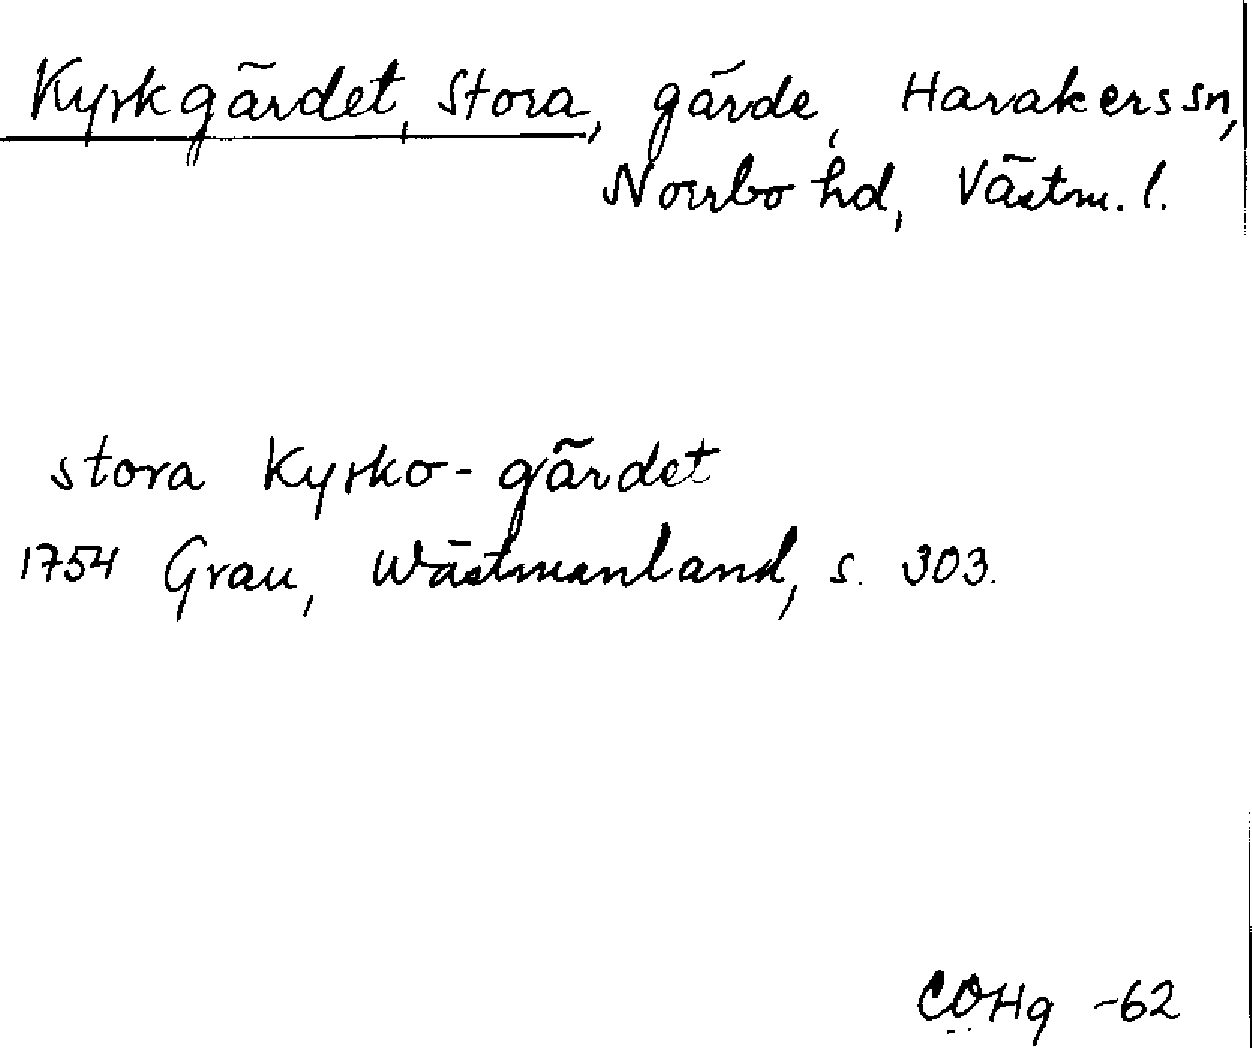 Kyrkgärdet, Stora, gärde, Harakers sn,
Norrbo hd, Västm. l.
stora Kyrko-gärdet
1754 Grau, Wästmanland, s. 303.
CÖHg -62